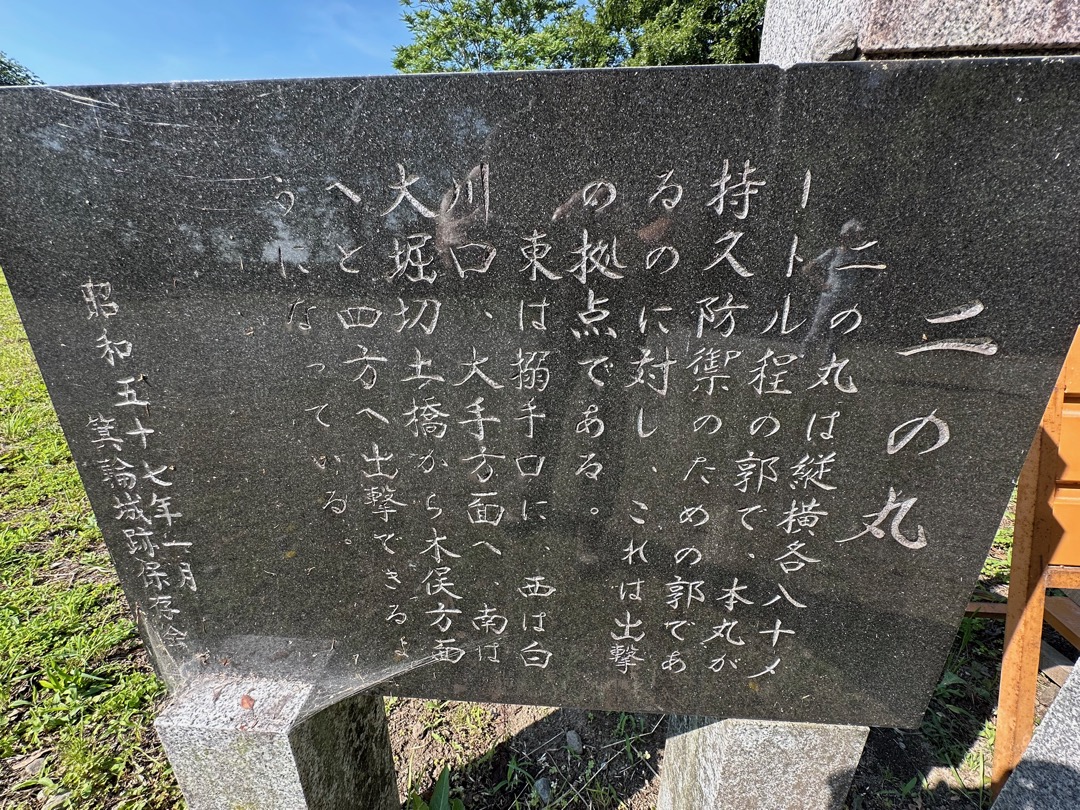 二の丸
二の丸は縦横各八十メ
ートル程の郭で、本丸が
持久防禦のための郭であ
るのに対し、これは出撃
の拠点である。
東は搦手口に、西は白
川口、大手方面へ、南は
大堀切土橋から木俣方面
へと四方へ出撃できるよ
うになっている。
昭和五十七年一月
箕輪城跡保存会